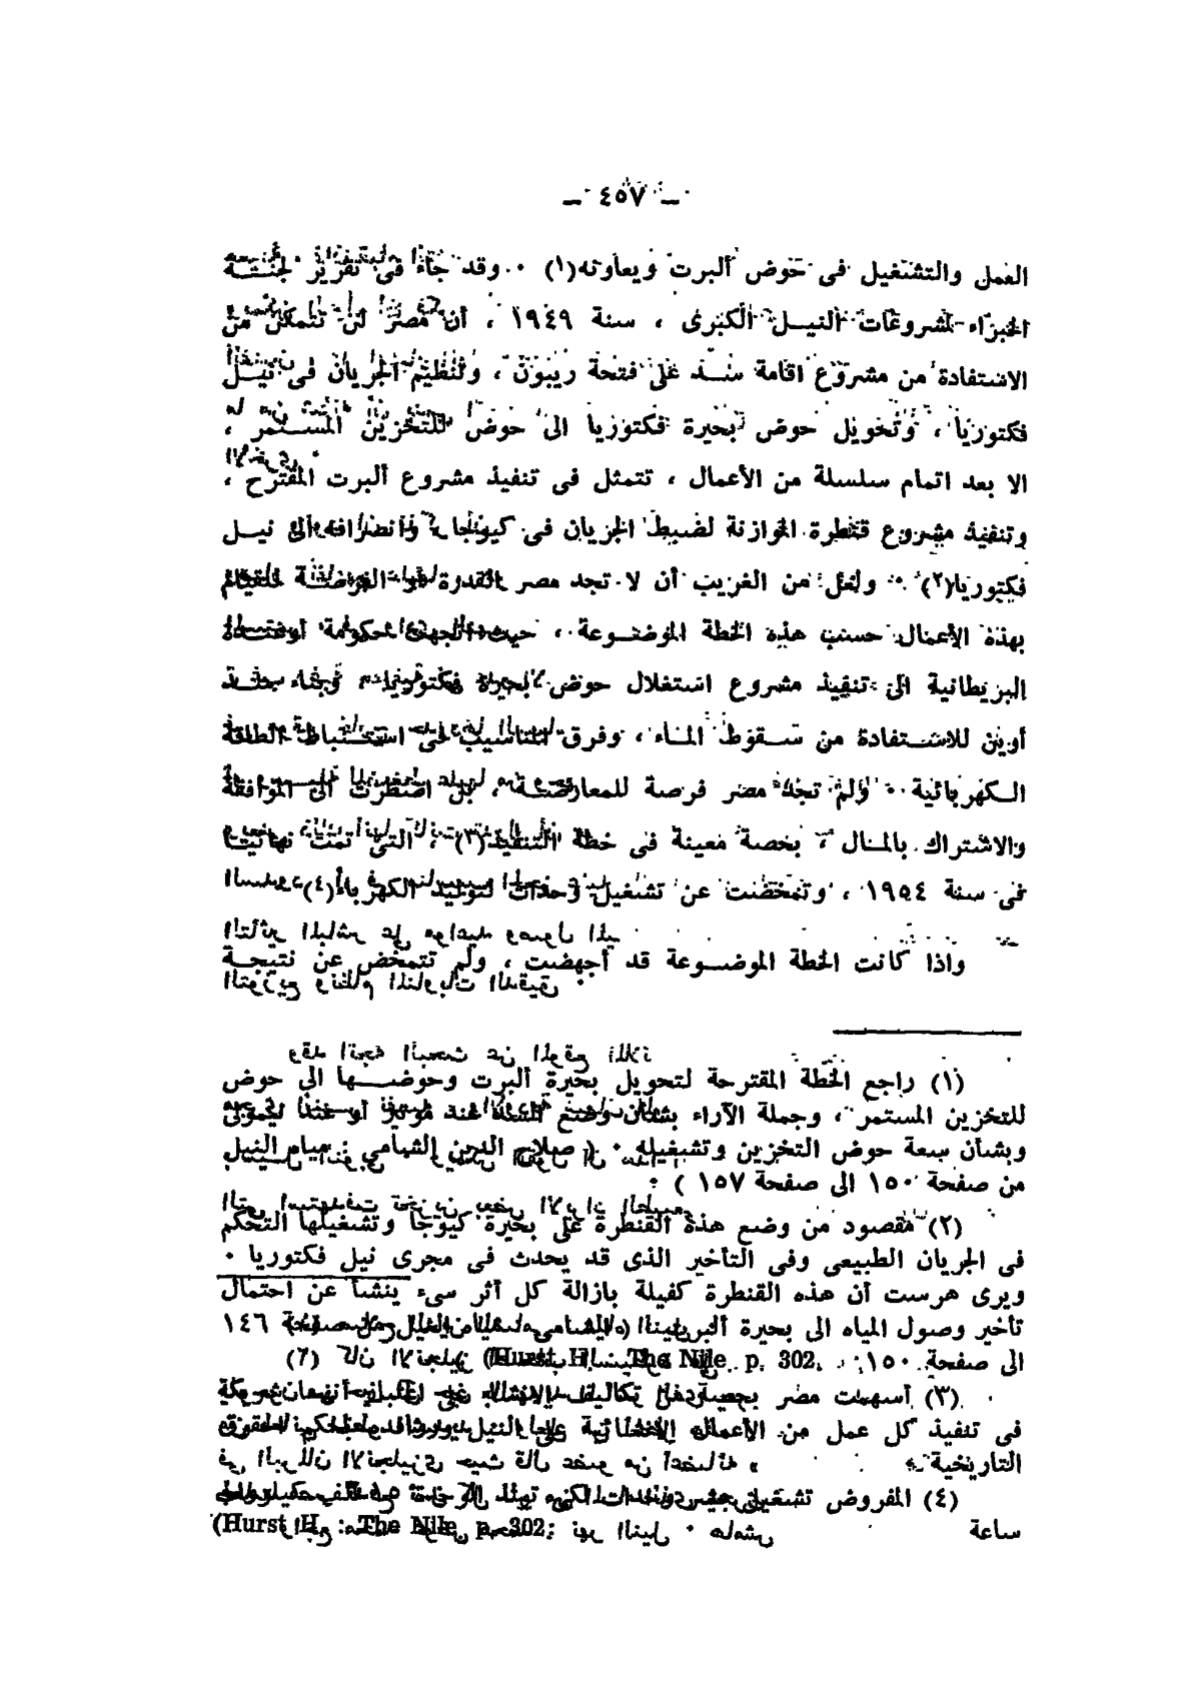 — ٤٥٧ —
العمل والتشغيل فى حوض ألبرت ويعاونه(١) ٠ وقد جاء فى تقرير لجنة
الخبراء لمشروعات النيل الكبرى ، سنة ١٩٤٩ ، أن مصر لن تتمكن من
الاستفادة من مشروع اقامة سد على فتحة ريبون ، وتنظيم الجريان فى نيل
فكتوريا ، وتحويل حوض بحيرة فكتوريا الى حوض للتخزين المستمر ،
الا بعد اتمام سلسلة من الأعمال ، تتمثل فى تنفيذ مشروع ألبرت المقترح ،
وتنفيذ مشروع قنطرة الموازنة لضبط الجريان فى كيوجا ، وانصرافه الى نيل
فكتوريا(٢) ٠ ولعل من الغريب أن لا تجد مصر القدرة أو الفرصة للقيام
بهذه الأعمال حسب هذه الخطة الموضوعة ، حيث اتجهت حكومة أوغندة
البريطانية الى تنفيذ مشروع استغلال حوض بحيرة فكتوريا ، وبناء سد
أوين للاستفادة من سقوط الماء ، وفرق المناسيب فى استنباط الطاقة
الكهربائية ٠ ولم تجد مصر فرصة للمعارضة ، بل اضطرت الى الموافقة
والاشتراك بالمال ، بحصة معينة فى خطة التنفيذ(٣) ، التى تمت نهائيا
فى سنة ١٩٥٤ ، وتمخضت عن تشغيل وحدات لتوليد الكهرباء(٤)
واذا كانت الخطة الموضوعة قد أجهضت ، ولم تتمخض عن نتيجة
(١) راجع الخطة المقترحة لتحويل بحيرة ألبرت وحوضها الى حوض
للتخزين المستمر ، وجملة الآراء بشأن وضع السد عند موتير أو عند نيمولى
وبشأن سعة حوض التخزين وتشغيله ٠ ( صلاح الدين الشامى : مياه النيل
من صفحة ١٥٠ الى صفحة ١٥٧ ) ٠
(٢) مقصود من وضع هذه القنطرة على بحيرة كيوجا وتشغيلها التحكم
فى الجريان الطبيعى وفى التأخير الذى قد يحدث فى مجرى نيل فكتوريا ٠
ويرى هرست أن هذه القنطرة كفيلة بازالة كل أثر سىء ينشأ عن احتمال
تأخير وصول المياه الى بحيرة ألبرت (الشامى : مياه النيل من صفحة ١٤٦
الى صفحة ١٥٠ (Hurst H. : The Nile p. 302.
(٣) أسهمت مصر بحصة من تكاليف الانشاء
فى تنفيذ كل عمل من الأعمال الانشائية على النيل
التاريخية ٠
(٤) المفروض تشغيل
ساعة (Hurst H. : The Nile p. 302;